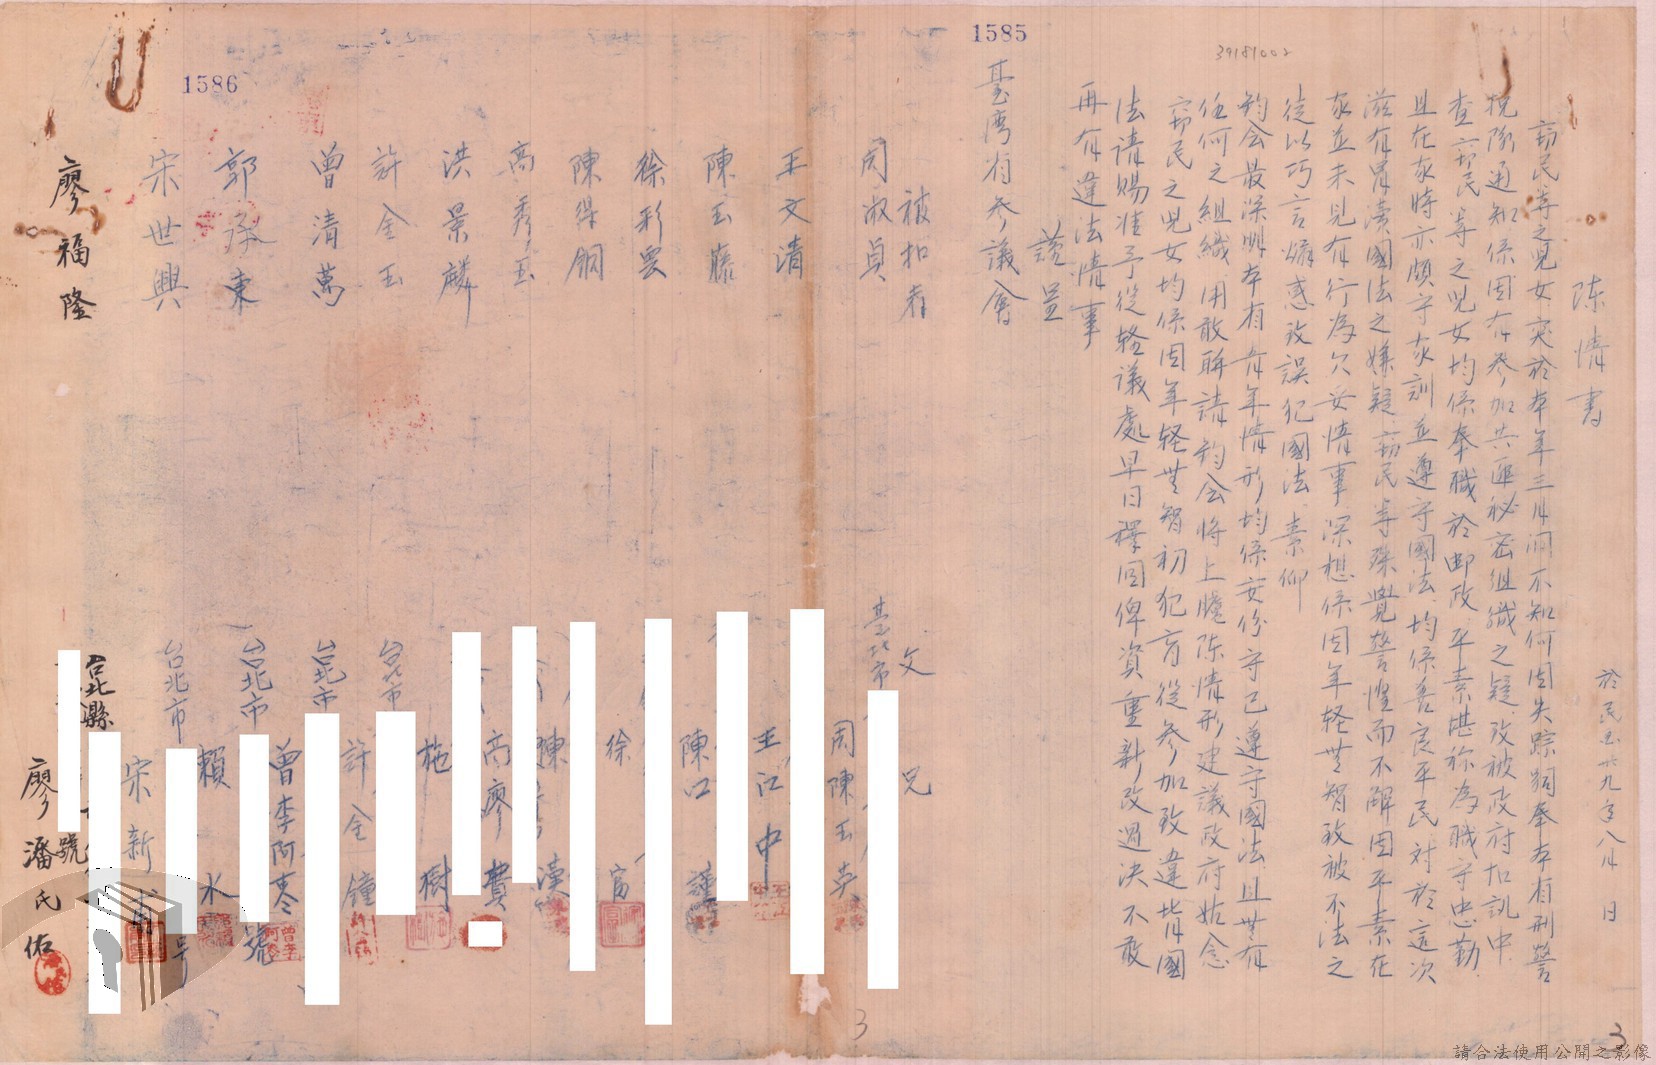 1585
1586
39181002
陳情書
於民國卅九年八月 日
竊民等之兒女突於本年三月間不知何因失踪嗣奉本省刑警
總隊通知係因有參加共匪秘密組織之疑致被政府扣訊中
查竊民等之兒女均係奉職於郵政平素堪称為職守忠勤
且在家時亦頗守家訓並遵守國法均係善良平民対於這次
滋有冒瀆國法之嫌疑竊民等殊覺警惶而不解因平素在
家並未見有行為欠妥情事深想係因年轻無智致被不法之
徒以巧言煽惑致誤犯國法素仰
鈞会最深明本省青年情形均係安份守己遵守國法且無有
任何之組織用敢聯請鈞会將上臚陳情形建議政府姑念
竊民之兒女均係因年轻無智初犯盲從參加致違背國
法請賜准予從輕議處早日釋回俾資重新改過決不敢
再有違法情事
謹呈
臺湾省參議會
被扣者 父兄
周淑貞 臺北市 周陳玉英
王文清 王江中
陳玉藤 陳口謹
徐彩雲 徐 富
陳得銅 陳 漢
高秀玉 高廖費
洪景麟 施 樹
許金玉 台北市 許全鐘
曾清萬 台北市 曾李阿枣 號
郭承東 台北市 賴 水
宋世興 台北市 宋新甫
廖福隆 台北縣 號 廖潘氏佑
3
3
請合法使用公開之影像